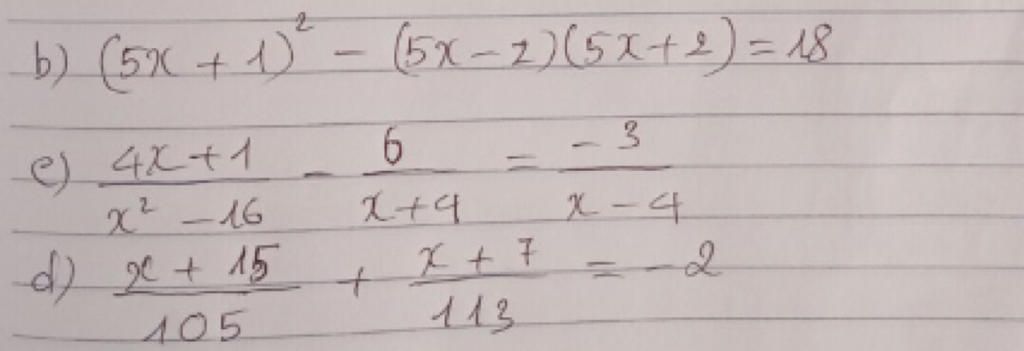 b) (5x + 1)² - (5x - 2)(5x + 2) = 18
c) \frac{4x+1}{x² - 16} - \frac{6}{x+4} = \frac{-3}{x-4}
d) \frac{x + 15}{105} + \frac{x + 7}{113} = -2